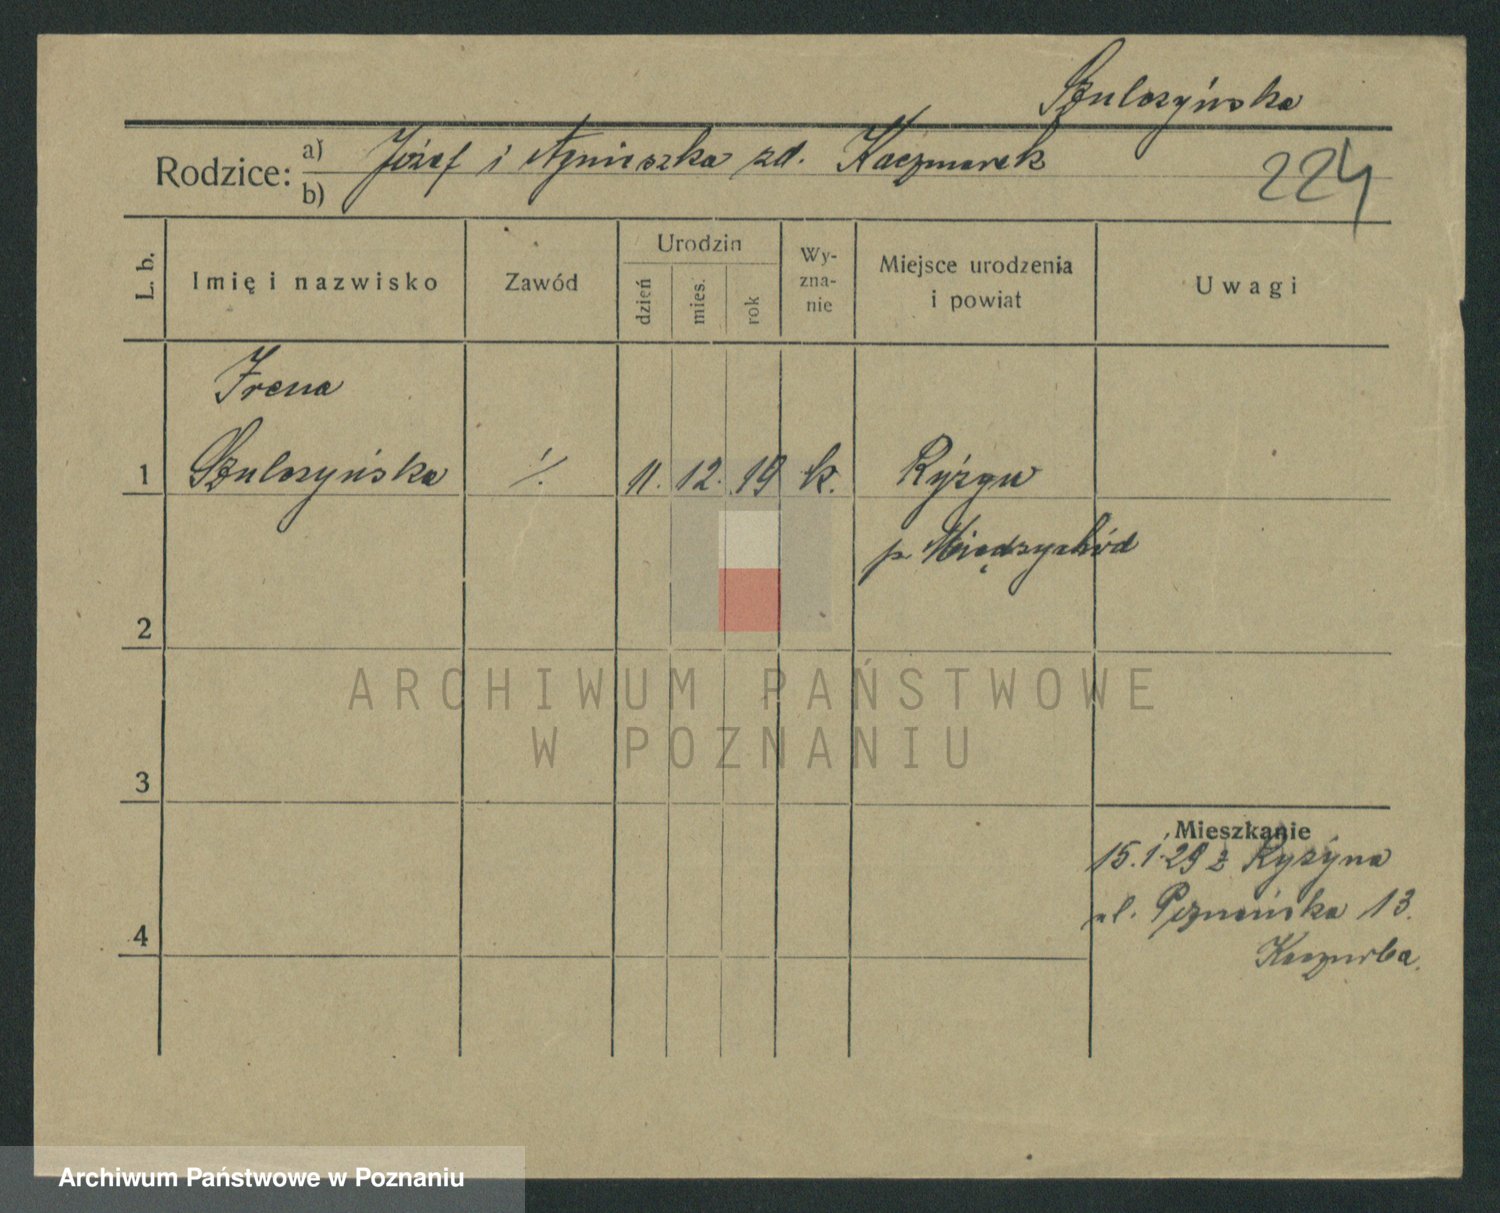 Szulczyńska
Rodzice: a) Józef i Agnieszka zd. Kaczmarek
b)
224
L. b.
Imię i nazwisko
Zawód
Urodzin
dzień
mies.
rok
Wy-
zna-
nie
Miejsce urodzenia
i powiat
Uwagi
Irena
1 Szulczyńska ./. 11. 12. 19 k. Ryżyn
p. Międzychód
2
ARCHIWUM PAŃSTWOWE
W POZNANIU
3
Mieszkanie
15.1.29 z Ryżyna
ul. Poznańska 13.
4
Archiwum Państwowe w Poznaniu